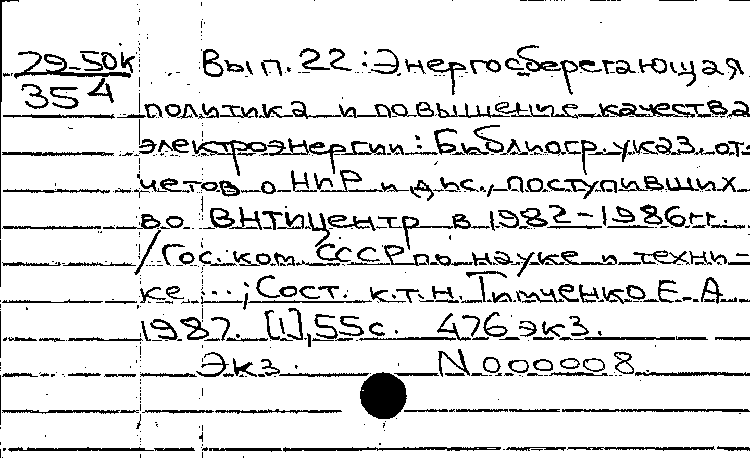 29-50к Вып. 22: Энергосберегающая
35 4 политика и повышение качества
электроэнергии: Библиогр. указ. от-
четов о НИР и дис., поступивших
во ВНТИЦентр в 1982-1986гг.
/Гос. ком. СССР по науке и техни-
ке ...; Сост. к.т.н. Тимченко Е.А
1987. [1], 55с. 476 экз.
Экз. N 000008